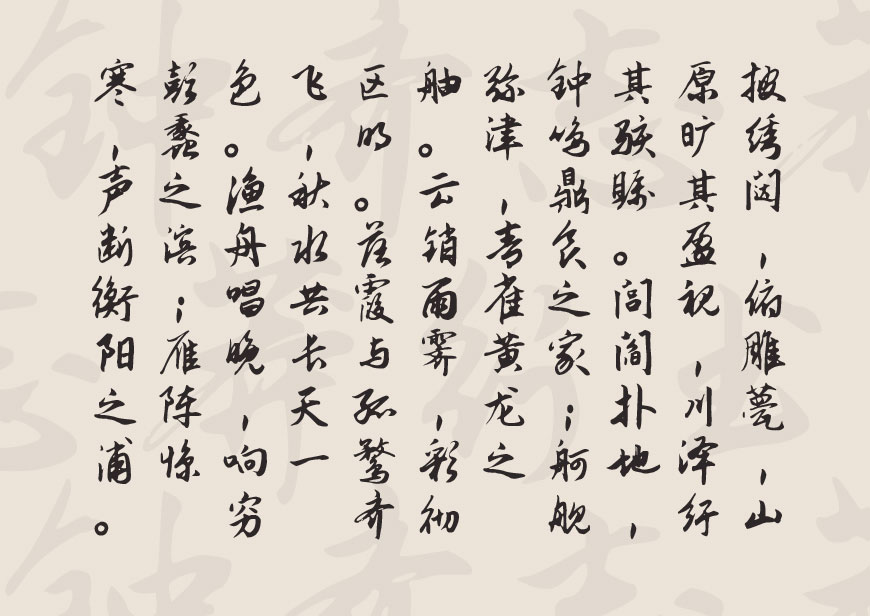 披绣闼，俯雕甍，山
原旷其盈视，川泽纡
其骇瞩。闾阎扑地，
钟鸣鼎食之家；舸舰
弥津，青雀黄龙之
舳。云销雨霁，彩彻
区明。落霞与孤鹜齐
飞，秋水共长天一
色。渔舟唱晚，响穷
彭蠡之滨；雁阵惊
寒，声断衡阳之浦。